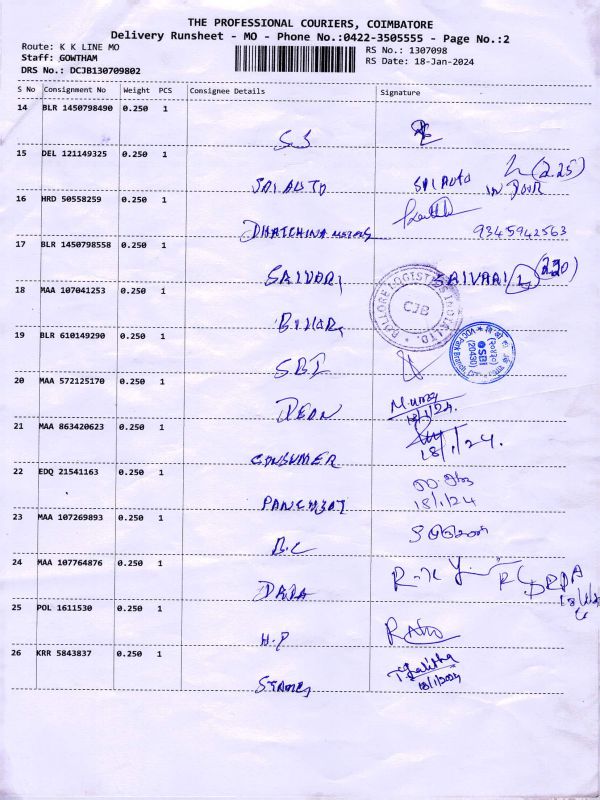 THE PROFESSIONAL COURIERS, COIMBATORE
Delivery Runsheet - MO - Phone No.:0422-3505555 - Page No.:2
Route: K K LINE MO
RS No.: 1307098
Staff: GOWTHAM
RS Date: 18-Jan-2024
DRS No.: DCJB130709802
S No Consignment No Weight PCS Consignee Details Signature
14 BLR 1450798490 0.250 1
SS
15 DEL 121149325 0.250 1
SAI AUTO SAI Auto (2.25)
16 HRD 50558259 0.250 1
DHATCHINA MOTORS 9345942563
17 BLR 1450798558 0.250 1
SAIVARI SAIVARI (220)
18 MAA 107041253 0.250 1
CJB
19 BLR 610149290 0.250 1
SBI
SBI
(20430)
20 MAA 572125170 0.250 1
DEAN
18/1/24.
21 MAA 863420623 0.250 1
CONSUMER 18/1/24.
22 EDQ 21541163 0.250 1
PANCHJAT 18/1/24
23 MAA 107269893 0.250 1
B.C
24 MAA 107764876 0.250 1
DRDA DRDA
25 POL 1611530 0.250 1
H.P
26 KRR 5843837 0.250 1
STAMES
T. Lalitha
18/1/2024